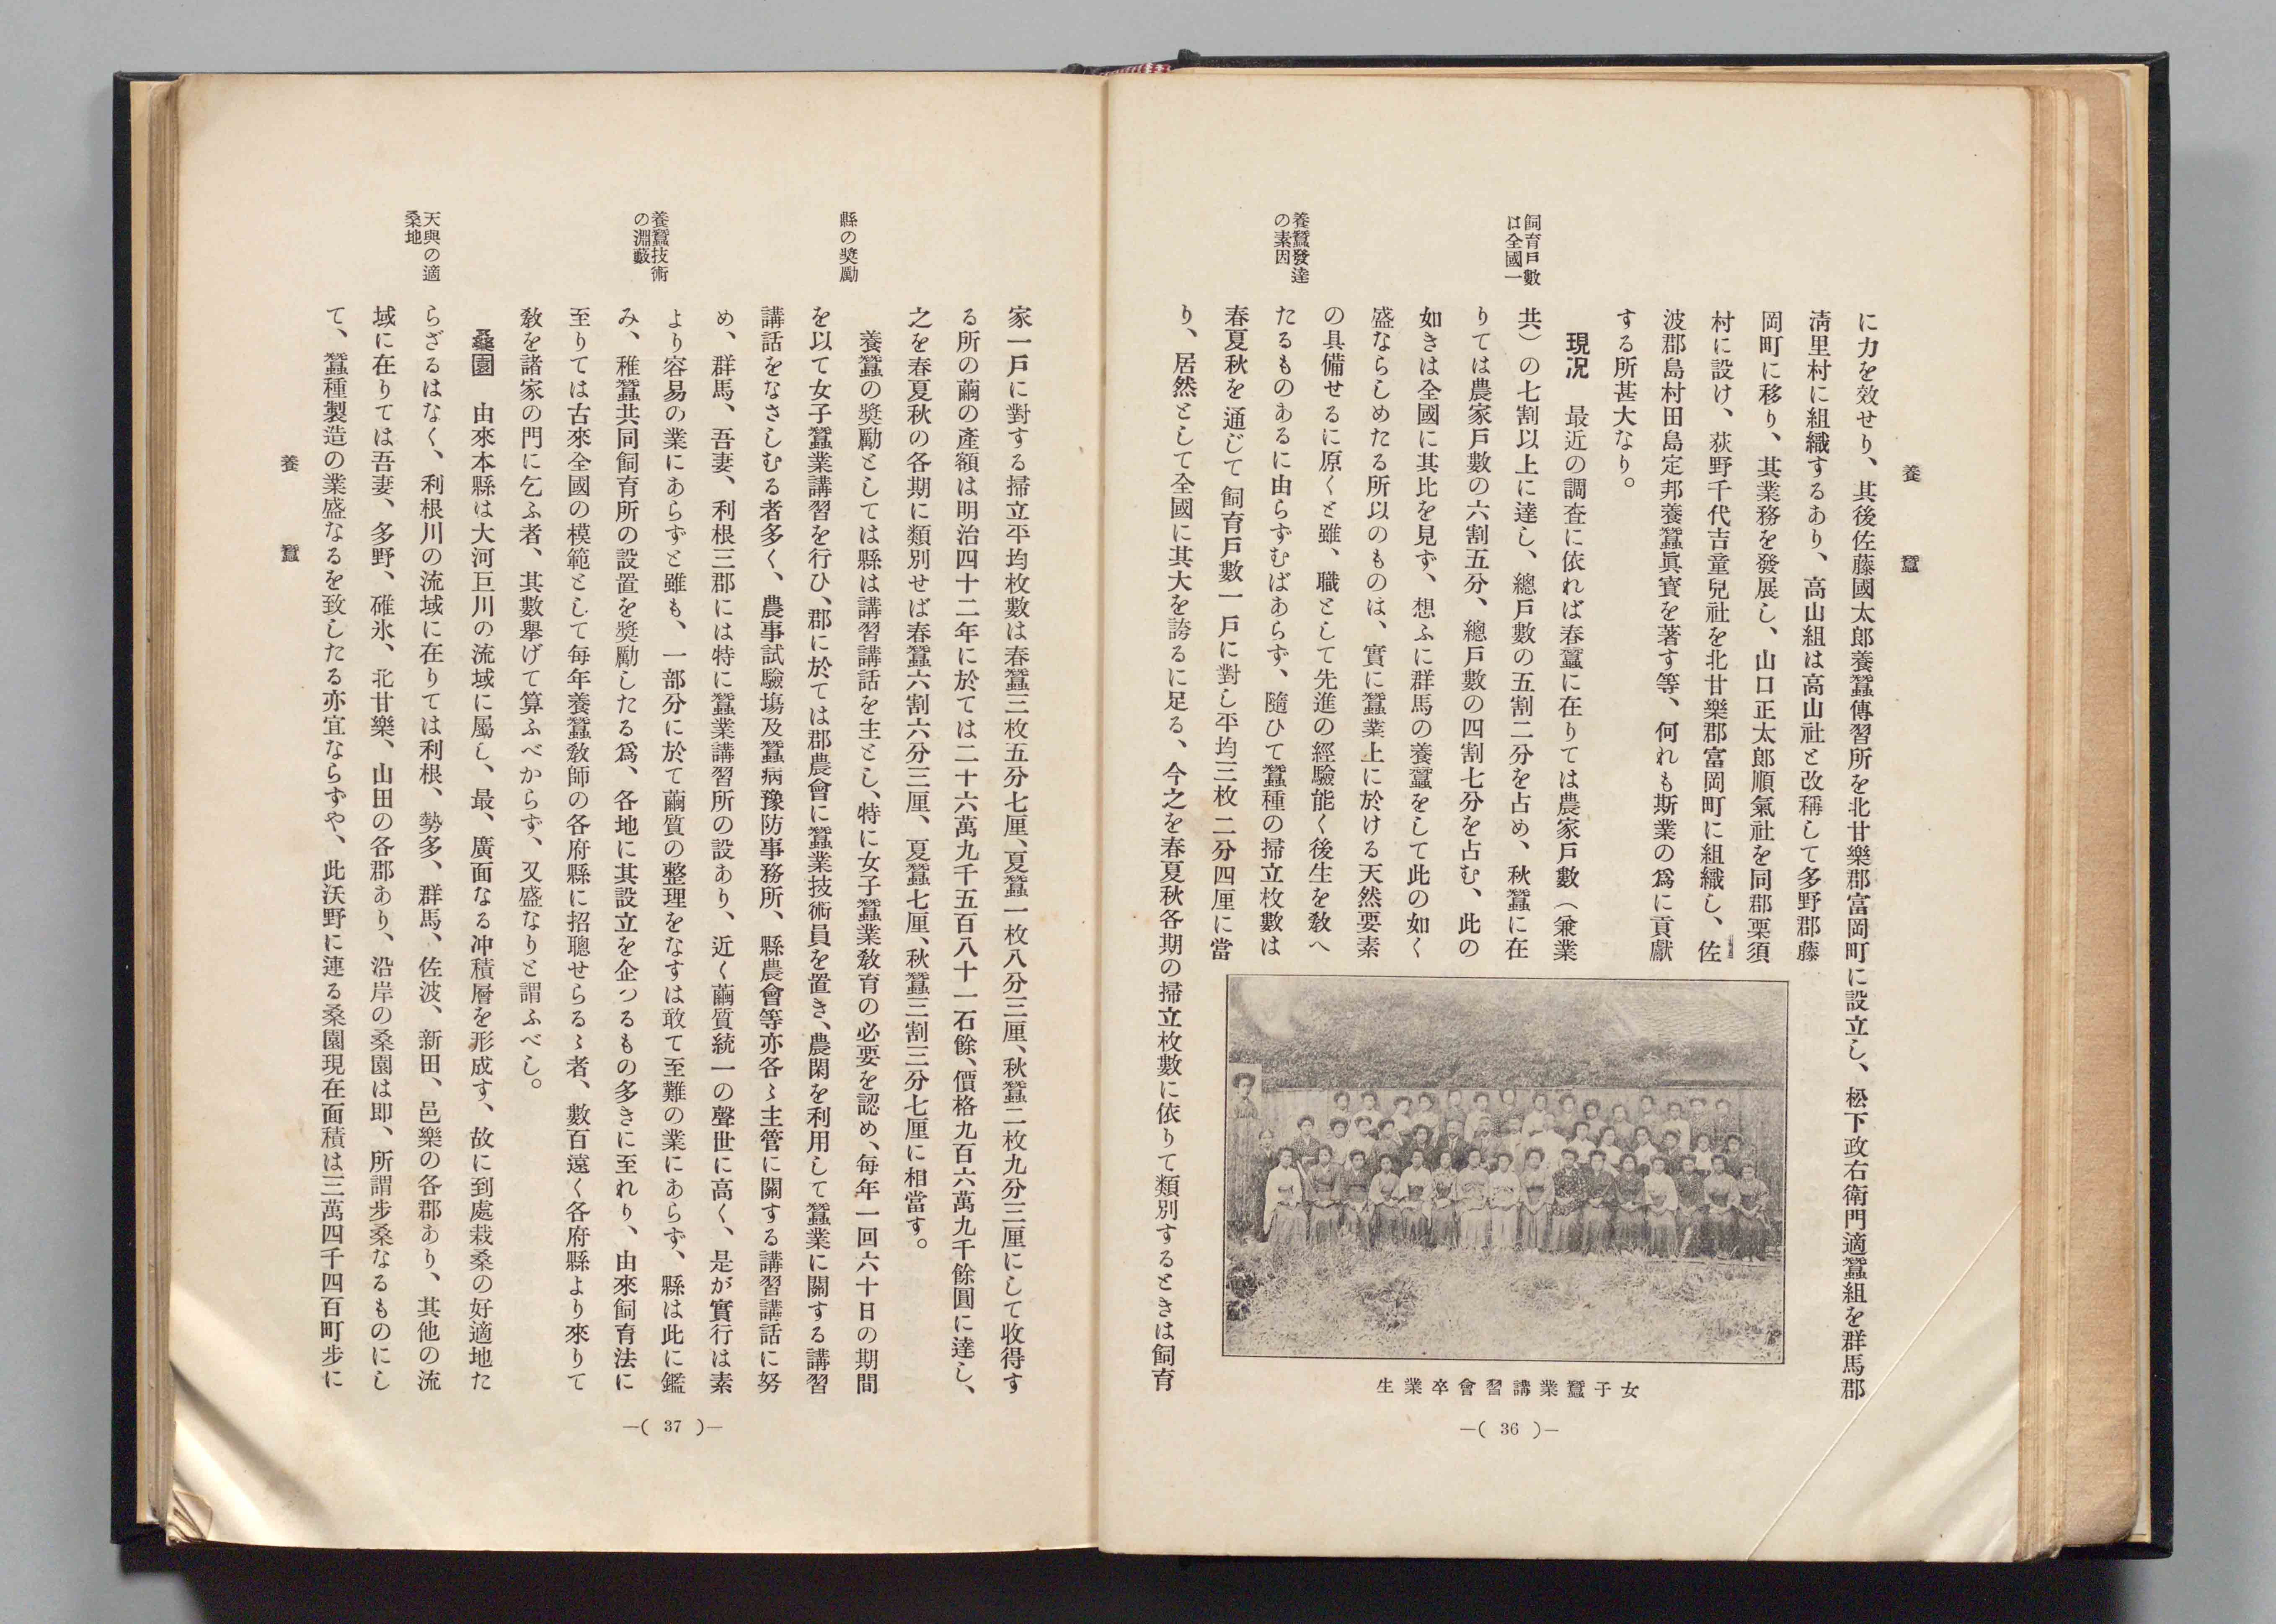 養蠶
に力を效せり、其後佐藤國太郎養蠶傳習所を北甘樂郡富岡町に設立し、松下政右衛門適蠶組を群馬郡
淸里村に組織するあり、高山組は高山社と改稱して多野郡藤
岡町に移り、其業務を發展し、山口正太郎順氣社を同郡栗須
村に設け、荻野千代吉童兒社を北甘樂郡富岡町に組織し、佐
波郡島村田島定邦養蠶眞寳を著す等、何れも斯業の爲に貢獻
する所甚大なり。
飼育戸數
は全國一
現况　最近の調査に依れば春蠶に在りては農家戸數（兼業
共）の七割以上に達し、總戸數の五割二分を占め、秋蠶に在
りては農家戸數の六割五分、總戸數の四割七分を占む、此の
如きは全國に其比を見ず、想ふに群馬の養蠶をして此の如く
盛ならしめたる所以のものは、實に蠶業上に於ける天然要素
養蠶發達
の素因
の具備せるに原くと雖、職として先進の經驗能く後生を敎へ
たるものあるに由らずむばあらず、隨ひて蠶種の掃立枚數は
春夏秋を通じて飼育戸數一戸に對し平均三枚二分四厘に當
り、居然として全國に其大を誇るに足る、今之を春夏秋各期の掃立枚數に依りて類別するときは飼育
女子蠶業講習會卒業生
―( 36 )―
家一戸に對する掃立平均枚數は春蠶三枚五分七厘、夏蠶一枚八分三厘、秋蠶二枚九分三厘にして收得す
る所の繭の產額は明治四十二年に於ては二十六萬九千五百八十一石餘、價格九百六萬九千餘圓に達し、
之を春夏秋の各期に類別せば春蠶六割六分三厘、夏蠶七厘、秋蠶三割三分七厘に相當す。
縣の奬勵
養蠶の奬勵としては縣は講習講話を主とし、特に女子蠶業敎育の必要を認め、每年一回六十日の期間
を以て女子蠶業講習を行ひ、郡に於ては郡農會に蠶業技術員を置き、農閑を利用して蠶業に關する講習
講話をなさしむる者多く、農事試驗塲及蠶病豫防事務所、縣農會等亦各〻主管に關する講習講話に努
め、群馬、吾妻、利根三郡には特に蠶業講習所の設あり、近く繭質統一の聲世に高く、是が實行は素
より容易の業にあらずと雖も、一部分に於て繭質の整理をなすは敢て至難の業にあらず、縣は此に鑑
養蠶技術
の淵藪
み、稚蠶共同飼育所の設置を奬勵したる爲、各地に其設立を企つるもの多きに至れり、由來飼育法に
至りては古來全國の模範として每年養蠶敎師の各府縣に招聰せらるゝ者、數百遠く各府縣より來りて
敎を諸家の門に乞ふ者、其數擧げて算ふべからず、又盛なりと謂ふべし。
桑園　由來本縣は大河巨川の流域に屬し、最、廣面なる冲積層を形成す、故に到處栽桑の好適地た
天與の適
桑地
らざるはなく、利根川の流域に在りては利根、勢多、群馬、佐波、新田、邑樂の各郡あり、其他の流
域に在りては吾妻、多野、碓氷、北甘樂、山田の各郡あり、沿岸の桑園は即、所謂步桑なるものにし
て、蠶種製造の業盛なるを致したる亦宜ならずや、此沃野に連る桑園現在面積は三萬四千四百町步に
養蠶
―( 37 )―